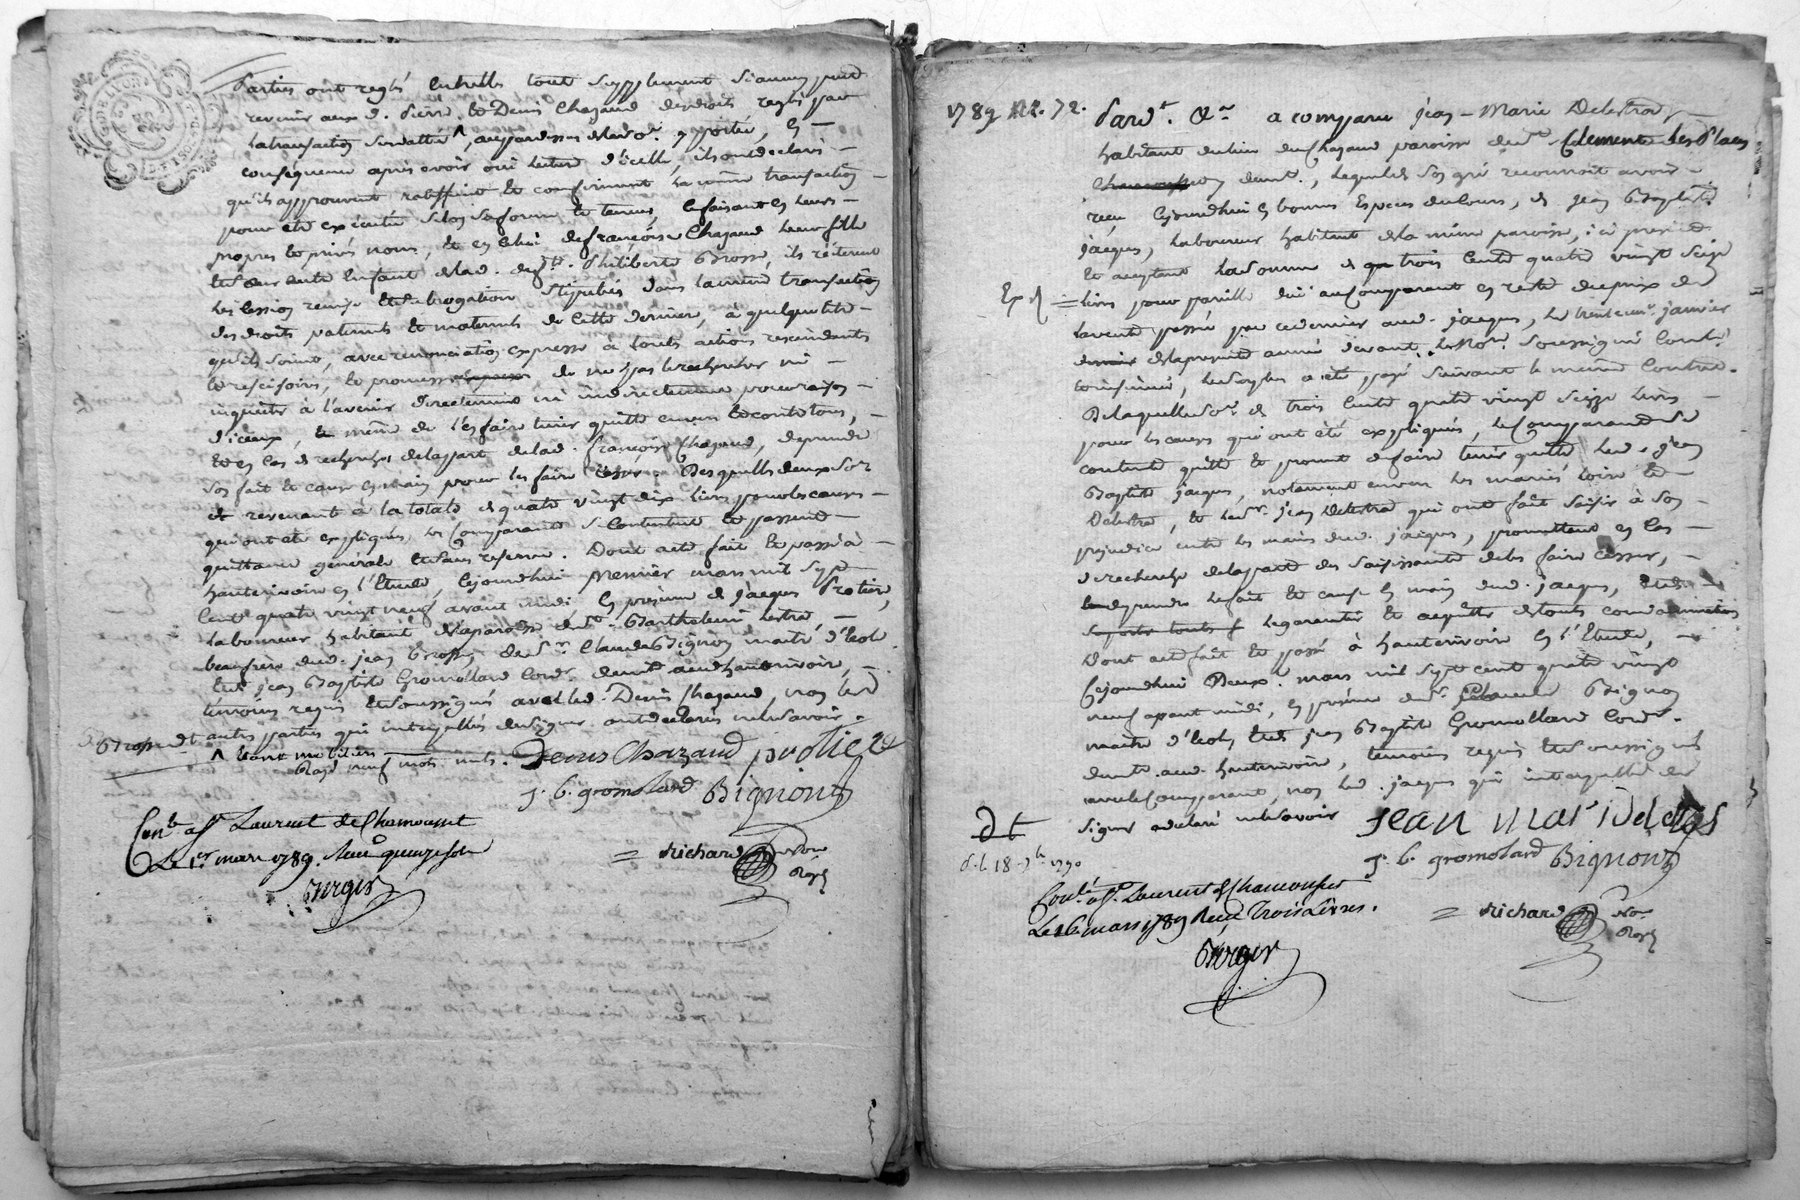 parties ont reglé entrelles tout supplement qui peut
revenir aux d. Pierre et Denis Chazaud des droits reglés par
la transaction susdattée ^, au pardessus de la so.e y portée, en
consequence après avoir oui lecture d'icelle, ils ont declaré
qu'ils approuvent ratiffient et confirment la même transaction
pour etre executée selon sa forme et teneur, le faisant en leurs
propres et privés noms, et en celui de françoise Chazaud leur fille
et sœur enfant de lad. Philiberte Brosse, ils réiterent
les cession remise et subrogation stipulés dans la même transaction
des droits paternels et maternels de cette derniere, à quelque titre
qu'ils soient, avec renonciation expresse à touts actions rescindants
et rescisoires, et promesse de ne pas le rechercher ni
inquieter à l'avenir directement ni indirectement pour raison
d'iceux, même de l'en faire tenir quitte envers et contre tous,
et en cas de recherches de la part de lad. françoise Chazaud, de prendre
son fait et cause en main pour les faire cesser. Desquelles deux so.es
revenant à la totale de quatre vingt dix livres pour les causes
qui ont été expliqués, les comparants se contentent et passent
quittance générale et sans reserve. Dont acte fait et passé à
hauterivoire en l'Etude, cejourdhui premier mars mil sept
cent quatre vingt neuf avant midi, en présence de jacques Protiere,
laboureur habitant de la paroisse de St. Barthelemi Lestra,
beaufrere dud. jean Brosse, de Sr. Claude Bignon maitre d'Ecole
et de jean Baptiste Gromollard Cord.r demt. aud. hauterivoire,
témoins requis et soussignés avec led. Denis Chazaud, non les
autres parties qui interpellés de signer ont declaré ne le savoir.
Denis Chazaud protiere
j. b. gromolard Bignon
Con.lé a St. Laurent de Chamousset
Le 1.er mars 1789. Reçu quinze sols
Burgier
= Richard No.re
Royal
1789 N.o 72.
Pard.t &.a a comparu jean-Marie Delestra
habitant du lieu du Chazaud paroisse de St. Clement Les Places
demt., lequel de son gré reconnoit avoir
reçu cejourdhui en bonnes Especes du Cours, de jean Baptiste
jacques, laboureur habitant de la même paroisse, ici present
et acceptant la somme de trois cents quatre vingt seize
Ex.d = livres pour pareille due au comparant en reste du prix de
la vente passée par ce dernier aud. jacques, le trente un janvier
de la presente année devant le No.re soussigné Cont.lé
et insinué, le surplus a été payé suivant le même Contrat.
De laquelle so.e de trois cents quatre vingt seize livres
pour les causes qui ont été expliqués, le comparant se
contente quitte et promet de faire tenir quitte led. jean
Baptiste jacques, notament envers les mariés Loire et
Delestra, et led. Sr. jean Delestra qui ont fait saisir à son
prejudice entre les mains dud. jacques, promettant en cas
de recherche de la part des saisissants de les faire cesser,
de prendre le fait et cause en main dud. jacques, et de
le garantir et acquitter de touts condamnations
Dont acte fait et passé à hauterivoire en l'Etude,
cejourdhui Deux mars mil sept cent quatre vingt
neuf avant midi, en présence de Sr. Claude Bignon
maitre d'Ecole, et de jean Baptiste Gromollard Cord.r
demt. aud. hauterivoire, témoins requis et soussignés
avec le Comparant, non led. jacques qui interpellé de
signer a declaré ne le savoir
jean mari
j. b. gromolard Bignon
Con.lé a St. Laurent de Chamousset
Le 16 mars 1789 Reçu Trois Livres.
Burgier
= Richard No.re
Royal